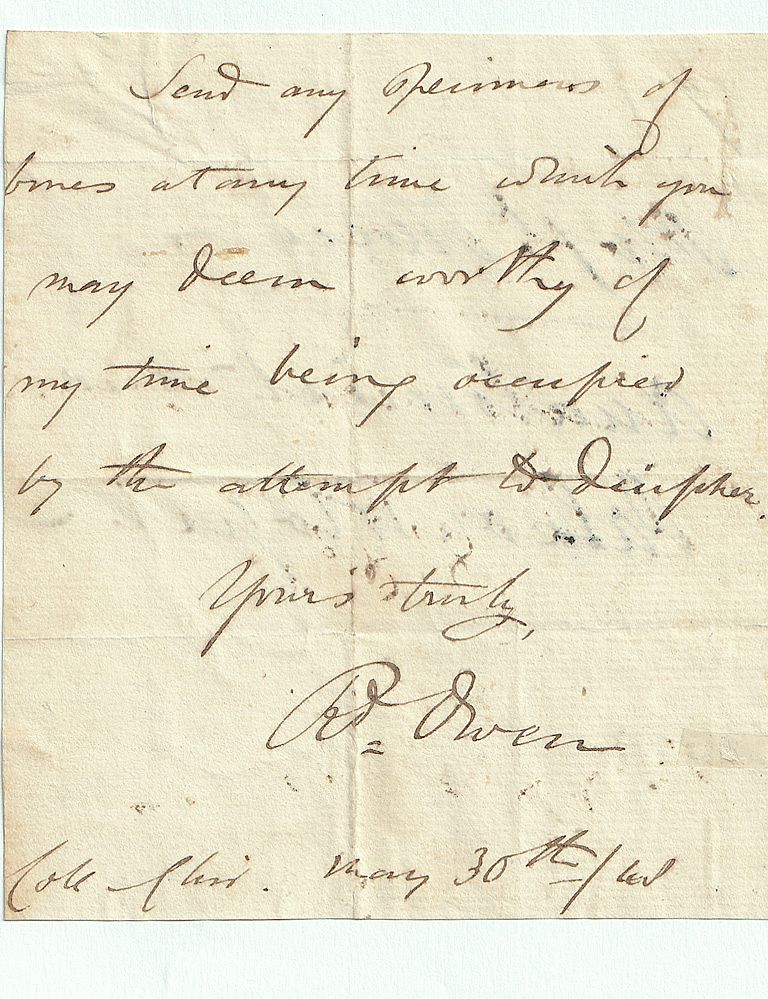 Send any specimens of
bones at any time which you
may deem worthy of
my time being occupied
by the attempt to decipher.
Yours truly,
Rd. Owen
Coll. May 30th/